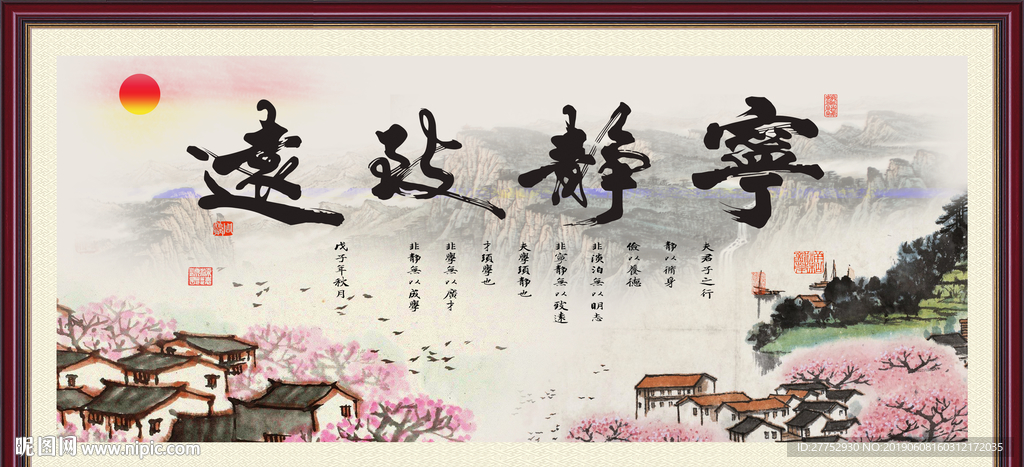 寧靜致遠
夫君子之行
靜以脩身
儉以養德
非澹泊無以明志
非寧靜無以致遠
夫學須靜也
才須學也
非學無以廣才
非靜無以成學
戊子年秋月
昵图网 www.nipic.com
ID:27752930 NO:20190608160312172035